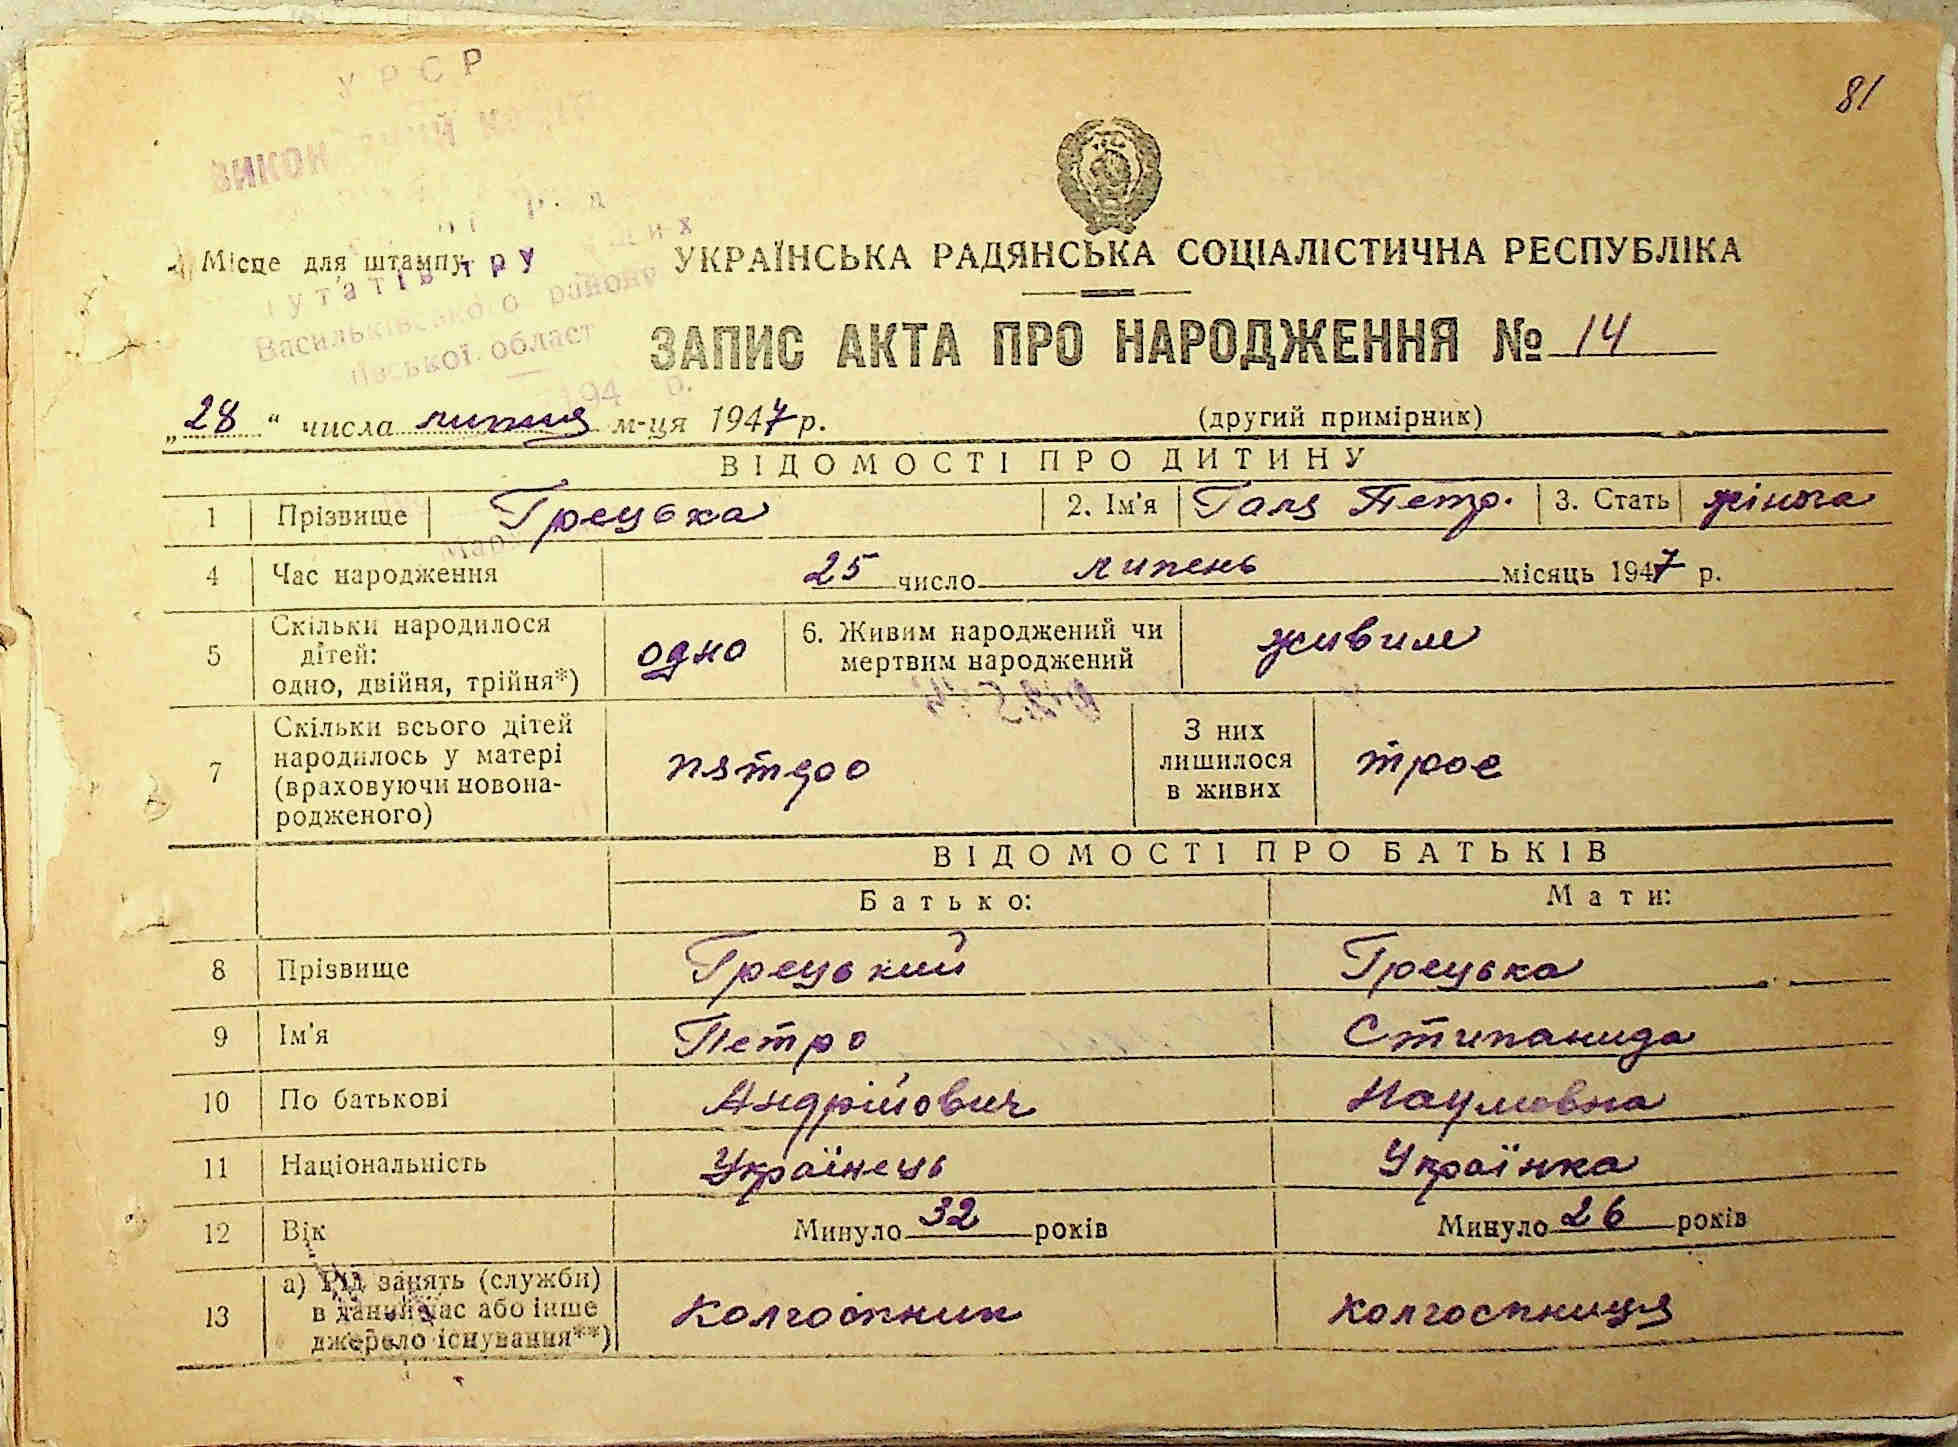 81
УРСР
Місце для штампу
Васильківського району
УКРАЇНСЬКА РАДЯНСЬКА СОЦІАЛІСТИЧНА РЕСПУБЛІКА
ЗАПИС АКТА ПРО НАРОДЖЕННЯ № 14
„28“ числа липня м-ця 1947 р.
(другий примірник)
ВІДОМОСТІ ПРО ДИТИНУ
1 Прізвище Грецька 2. Ім'я Галя Петр. 3. Стать жіноча
4 Час народження 25 число липень місяць 1947 р.
5 Скільки народилося дітей: одно, двійня, трійня*) одно 6. Живим народжений чи мертвим народжений живим
7 Скільки всього дітей народилось у матері (враховуючи новонародженого) пятеро З них лишилося в живих троє
ВІДОМОСТІ ПРО БАТЬКІВ
Батько: Мати:
8 Прізвище Грецький Грецька
9 Ім'я Петро Стипанида
10 По батькові Андрійович Наумовна
11 Національність Українець Українка
12 Вік Минуло 32 років Минуло 26 років
13 а) Рід занять (служби) в даний час або інше джерело існування**) Колгоспник Колгоспниця